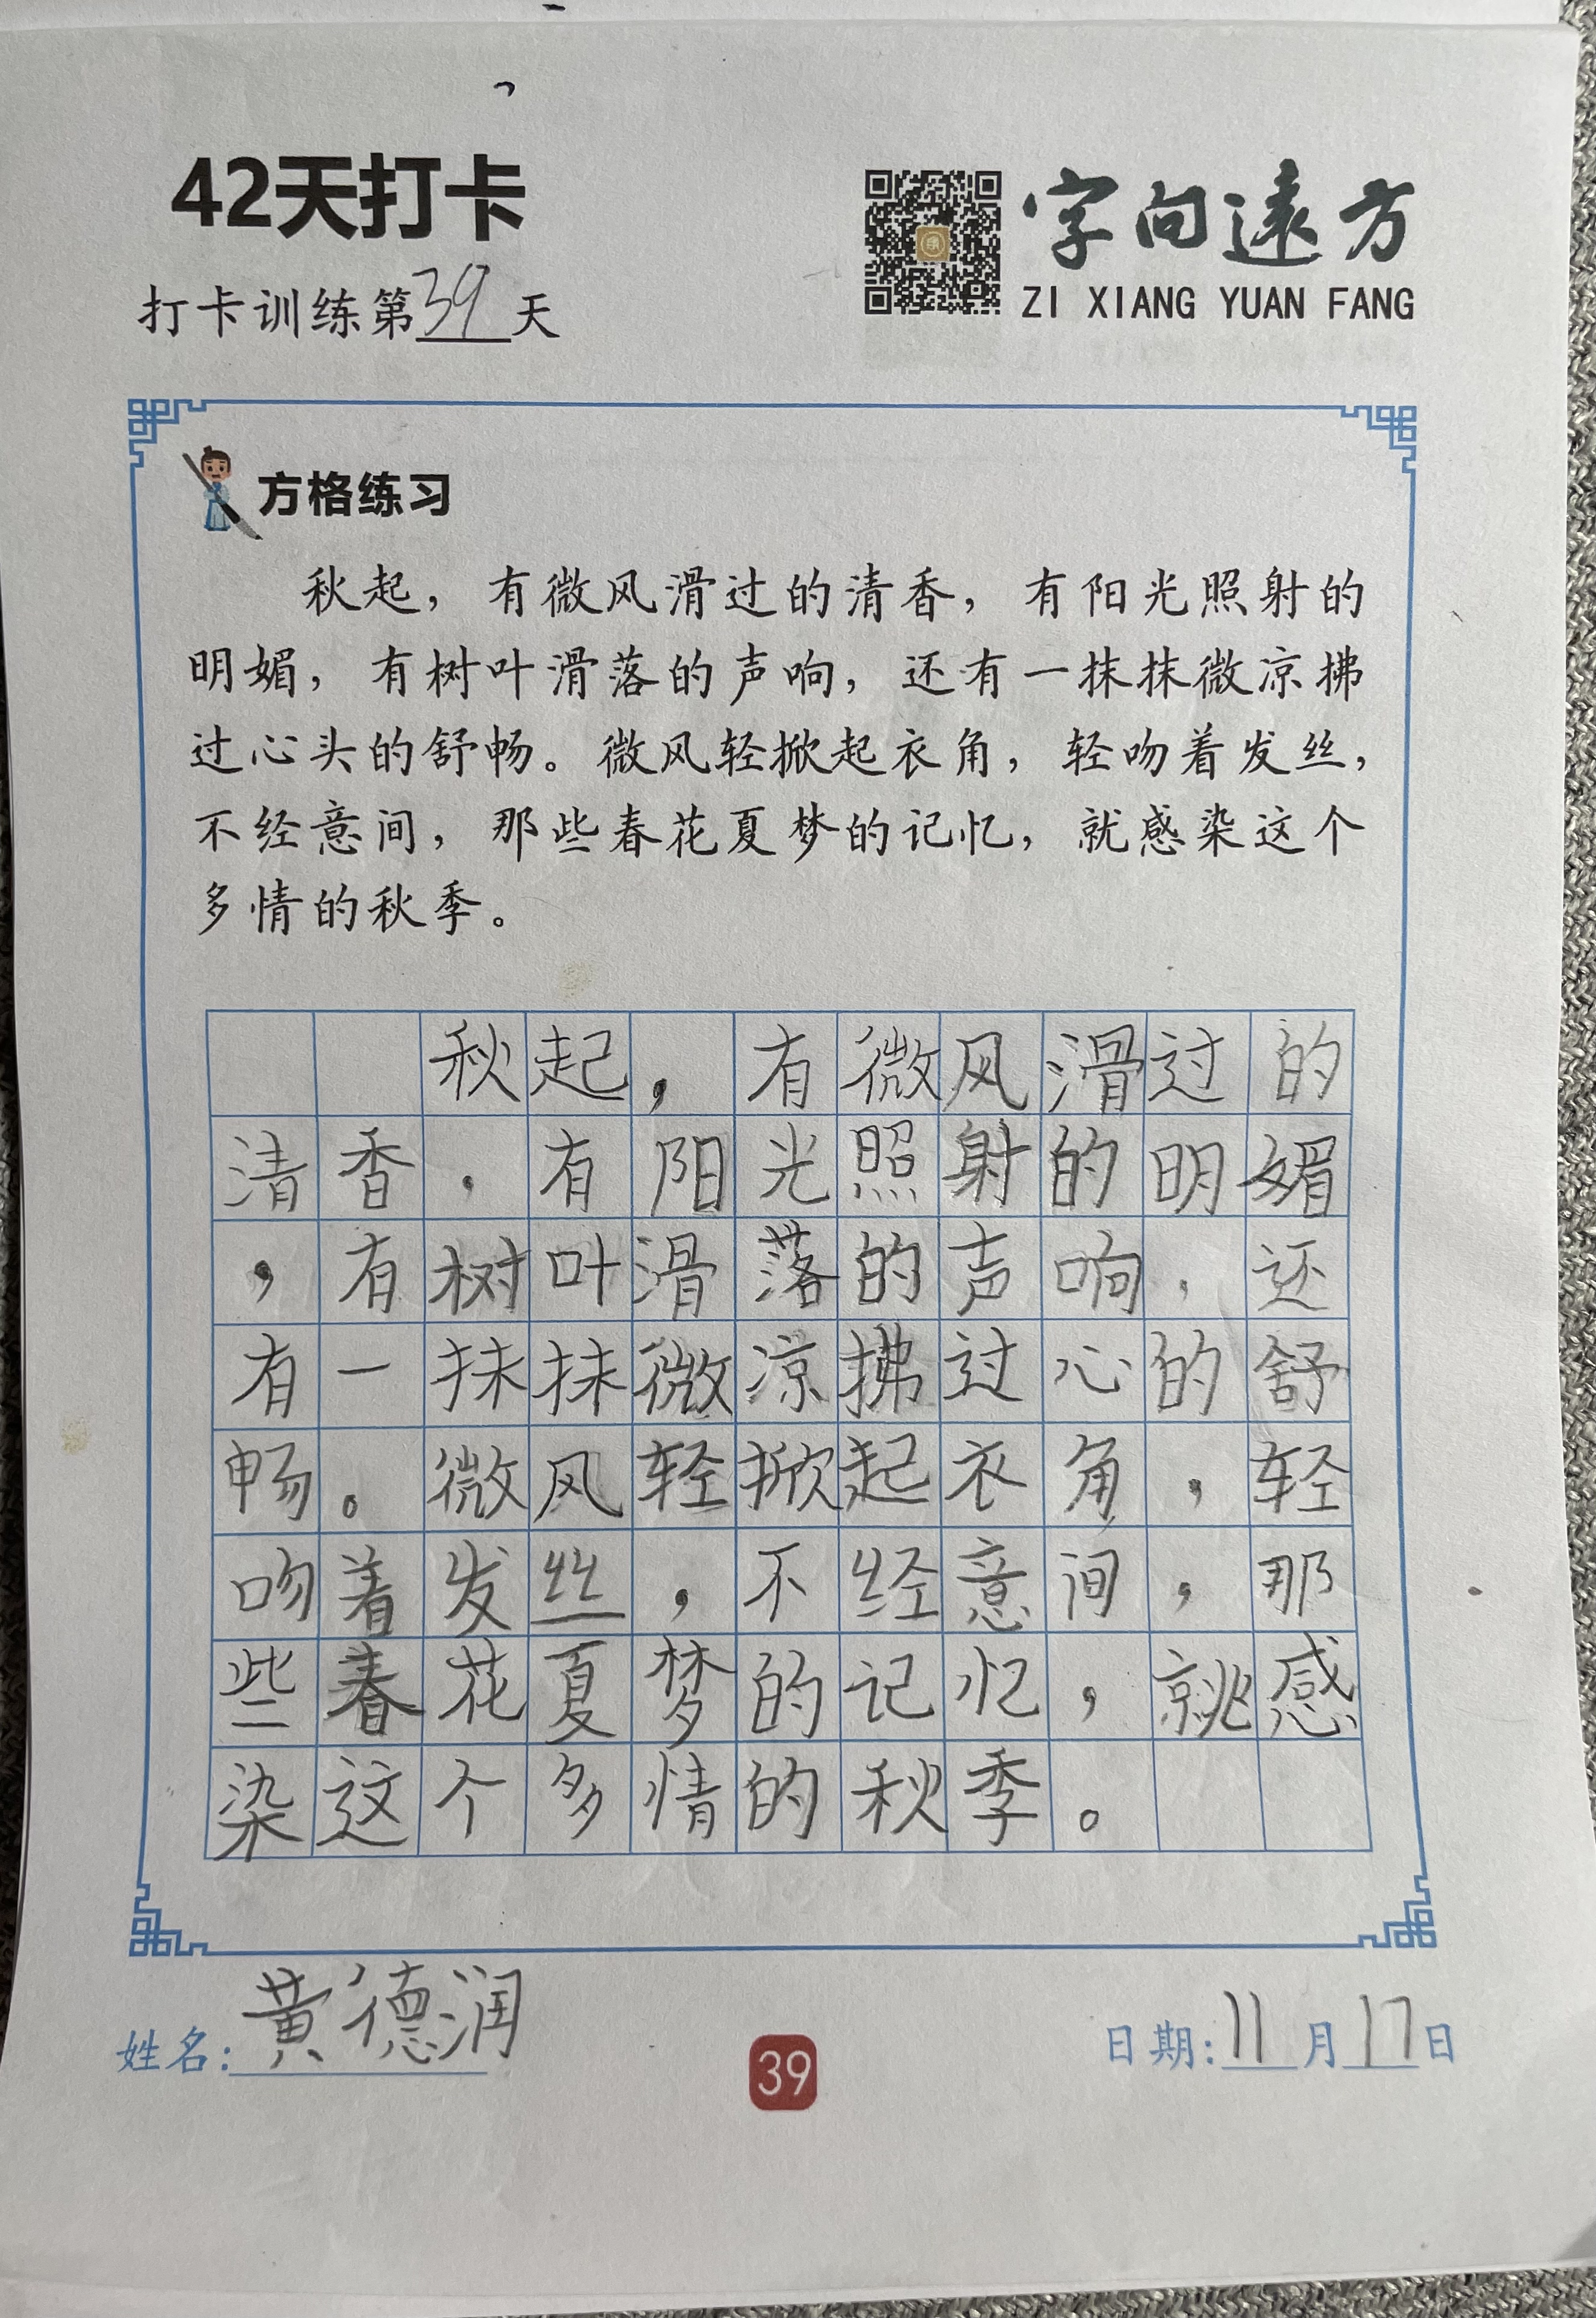 42天打卡
打卡训练第39天
字向遠方
ZI XIANG YUAN FANG
方格练习
秋起，有微风滑过的清香，有阳光照射的
明媚，有树叶滑落的声响，还有一抹抹微凉拂
过心头的舒畅。微风轻掀起衣角，轻吻着发丝，
不经意间，那些春花夏梦的记忆，就感染这个
多情的秋季。
秋起，有微风滑过的
清香，有阳光照射的明媚
，有树叶滑落的声响，还
有一抹抹微凉拂过心的舒
畅。微风轻掀起衣角，轻
吻着发丝，不经意间，那
些春花夏梦的记忆，就感
染这个多情的秋季。
姓名：黄德润
39
日期：11月17日